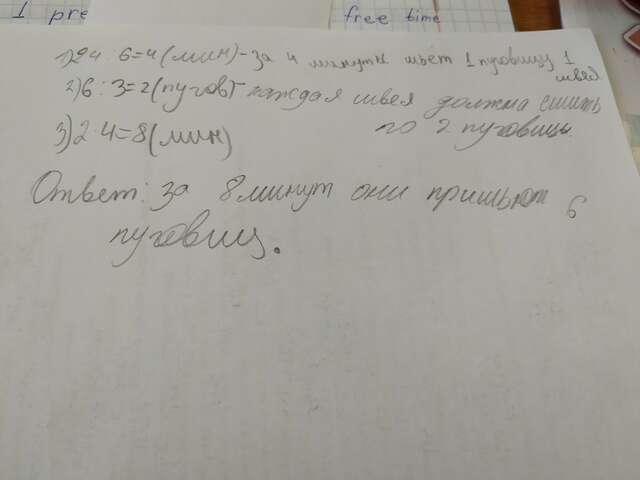 1 pre
free time
1) 24 : 6 = 4 (мин) - за 4 минуты шьет 1 пуговицу 1
швея
2) 6 : 3 = 2 (пугов) - каждая швея должна сшить
по 2 пуговицы.
3) 2 · 4 = 8 (мин)
Ответ: за 8 минут они пришьют 6
пуговиц.